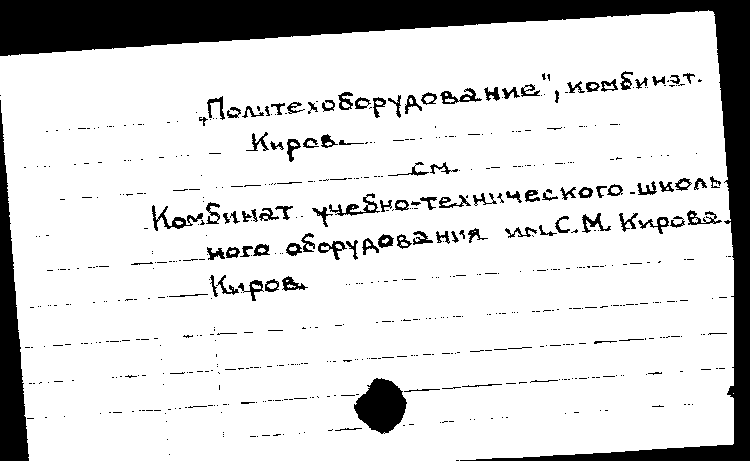 „Политехоборудование", комбинат.
Киров.
см.
Комбинат учебно-технического школь-
ного оборудования им. С. М. Кирова.
Киров.